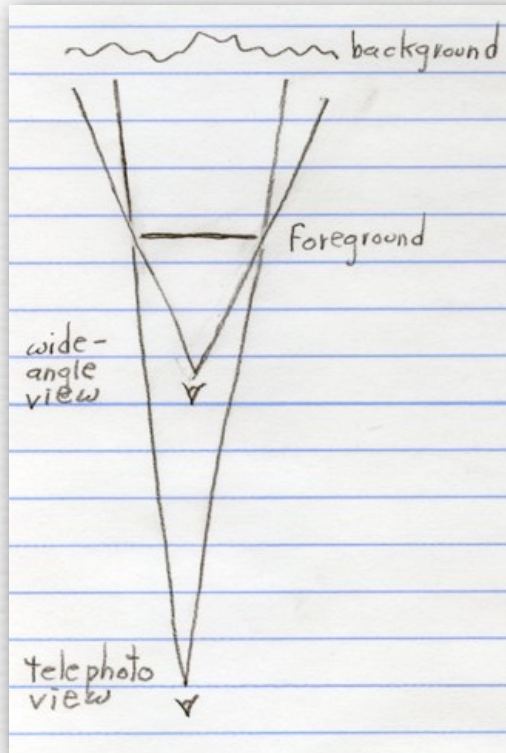 background
foreground
wide-
angle
view
telephoto
view